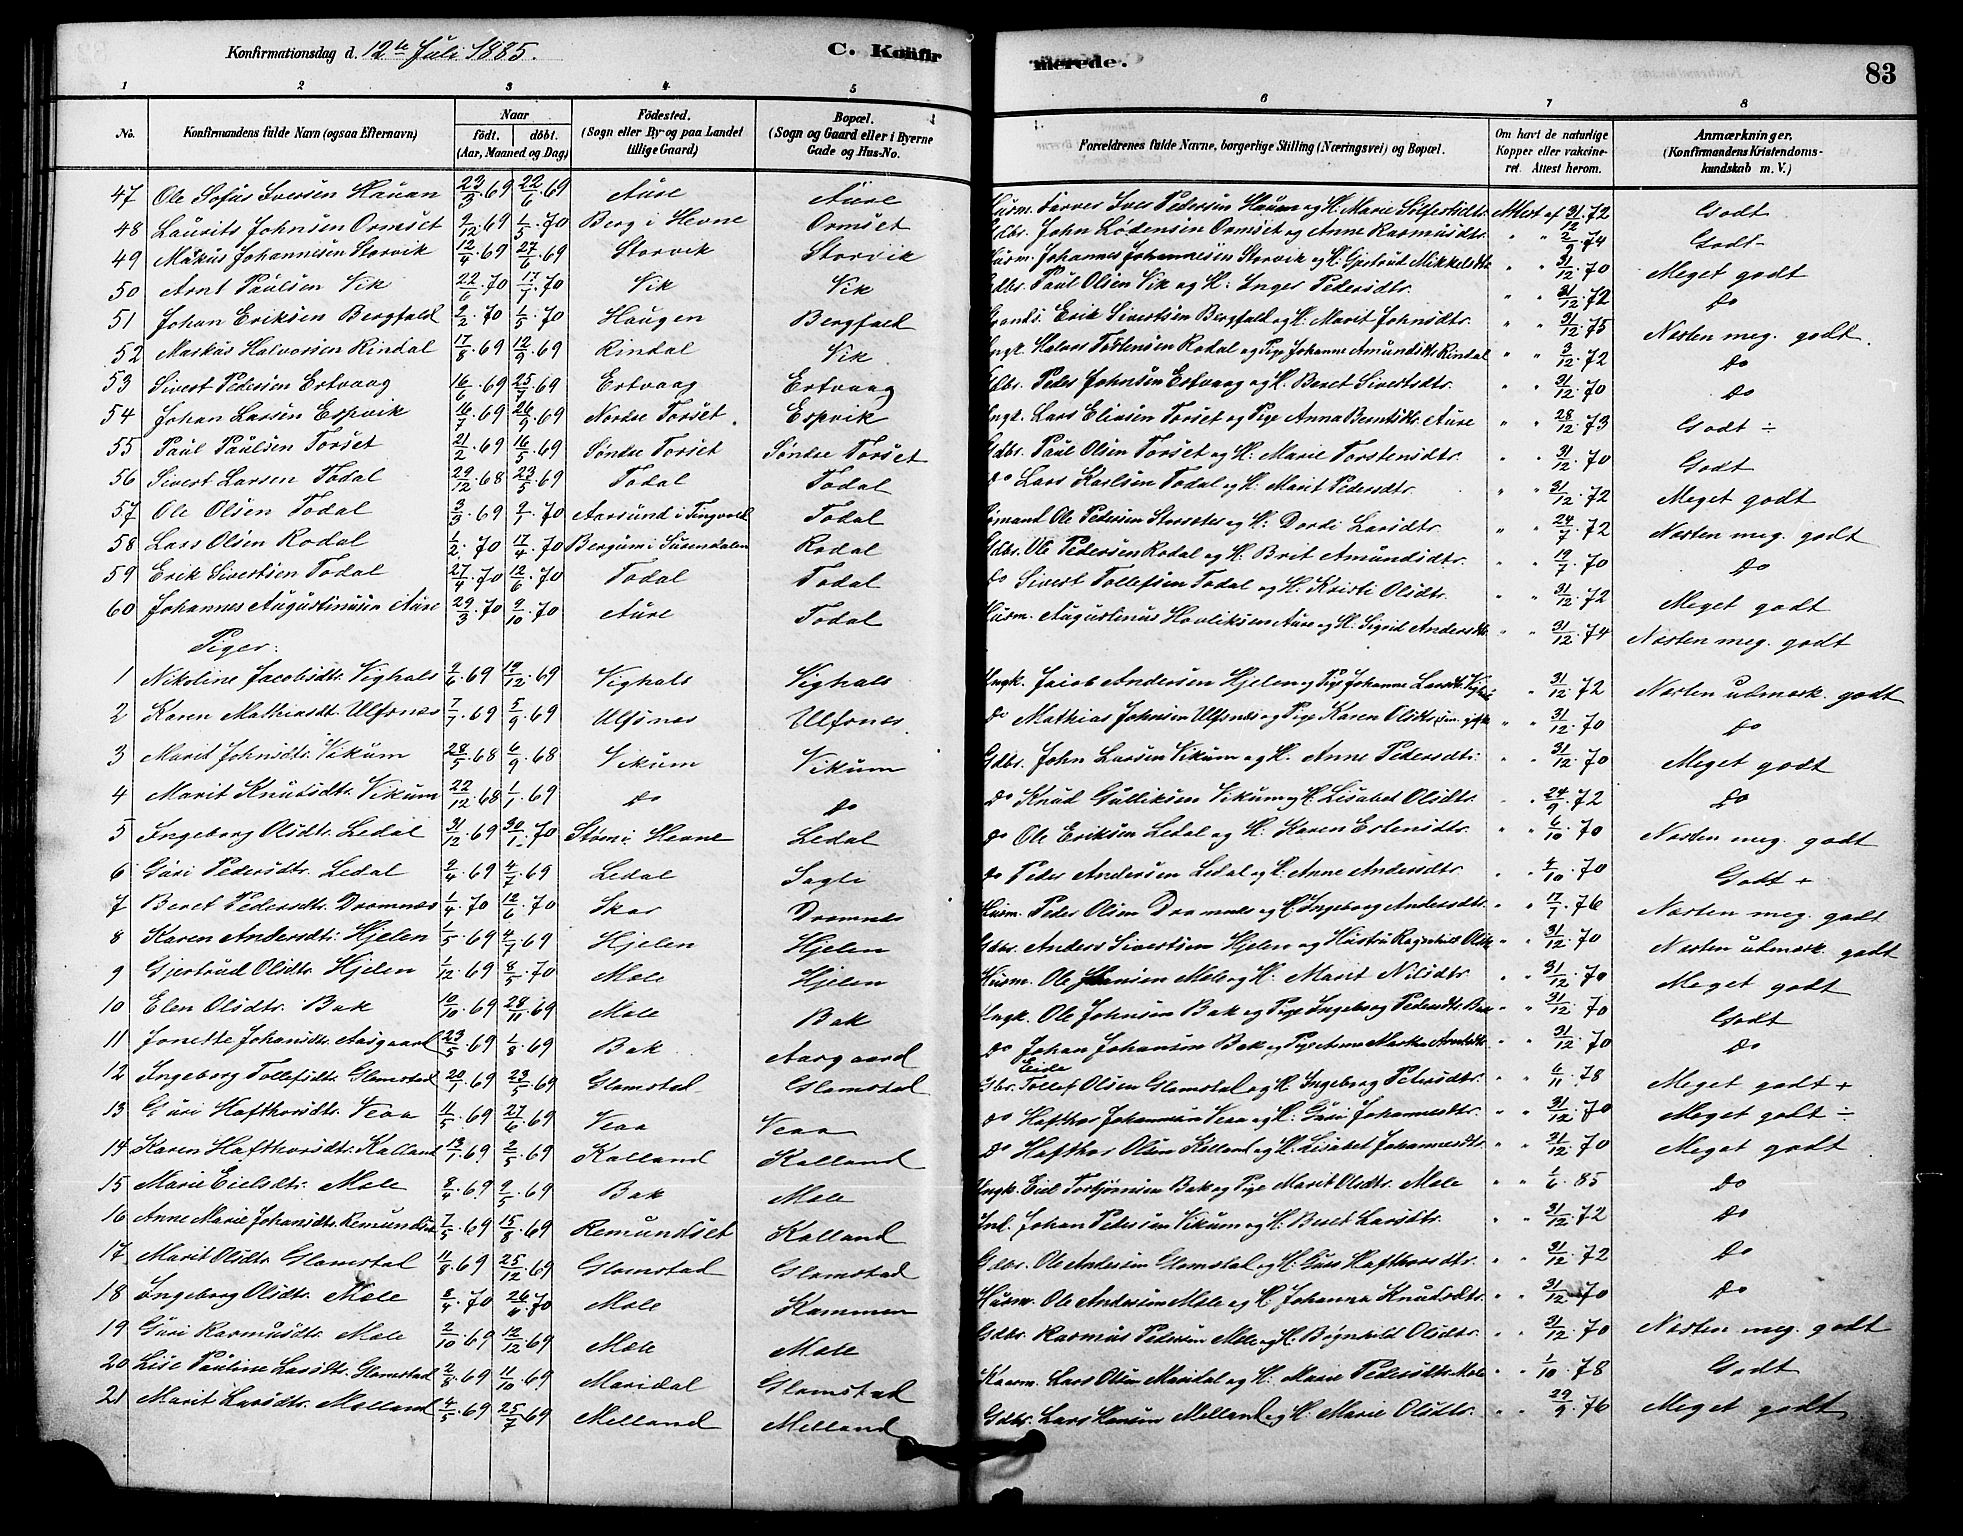 Konfirmationsdag d. 12te Juli 1885.
C. Konfirmerede.
83
1 2 3 4 5 6 7 8
No. | Konfirmandens fulde Navn (ogsaa Efternavn) | Naar födt. | döbt. (Aar, Maaned og Dag) | Födested. (Sogn eller By og paa Landet tillige Gaard) | Bopæl. (Sogn og Gaard eller i Byerne Gade og Hus-No. | Forældrenes fulde Navne, borgerlige Stilling (Næringsvei) og Bopæl. | Om havt de naturlige Kopper eller vakcineret. Attest herom. | Anmærkninger. (Konfirmandens Kristendomskundskab m. V.)
47 Ole Sofus Iversen Hauan 23/3 69 22/6 69 Aure Aure Husm. Farver Iver Pedersen Hauan og H. Marie Sølfestdtr. Attest af 31/12 72 Godt
48 Laurits Johnsen Ormset 9/12 69 1/5 70 Berg i Hevne Ormset Gdbr. John Lødensen Ormset og Anne Rasmusdtr. " " 2/9 74 Godt-
49 Markus Johannesen Storvik 12/4 69 27/6 69 Storvik Storvik Husm. Johannes Johannesen Storvik og H. Gjertrud Mikkelsdtr " " 31/12 70 Meget godt
50 Arnt Paulsen Vik 22/6 70 17/7 70 Vik Vik Gdbr. Paul Olsen Vik og H. Inger Pedersdtr. " " 31/12 72 do
51 Johan Eriksen Bergfald 2/2 70 1/5 70 Haugen Bergfald Erik Sivertsen Bergfald og H. Marit Johnsdtr. " " 31/12 75 Næsten meg. godt.
52 Markus Halvorsen Rindal 17/8 69 12/9 69 Rindal Vik Ungk. Halvor Torstensen Rodal og Pige Johanne Amundsdtr. Rindal " " 3/12 72 do
53 Sivert Pedersen Ertvaag 16/6 69 25/7 69 Ertvaag Ertvaag Gdbr. Peder Johnsen Ertvaag og H. Beret Sivertsdtr. " " 31/12 70 do
54 Johan Larsen Espvik 16/7 69 26/9 69 Nordre Torset. Espvik Ungk. Lars Eliasen Torset og Pige Anna Berntsdtr. Aure " " 28/12 73 Godt ÷
55 Paul Paulsen Torset 21/2 69 16/5 69 Søndre Torset Søndre Torset Gdbr. Paul Olsen Torset og H. Marie Torstensdtr. " " 31/12 70 Godt
56 Sivert Larsen Todal 29/12 68 23/5 69 Todal Todal do Lars Karlsen Todal og H. Marit Pedersdtr. " " 31/12 72 Meget godt
57 Ole Olsen Todal 3/3 69 2/1 70 Aarsund i Tingvold Todal Ole Pedersen Storsæter og H. Dordi Larsdtr. " " 24/7 72 Næsten meg. godt
58 Lars Olsen Rodal 1/2 70 17/4 70 Bergum i Surendalen Rodal Gdbr. Ole Pedersen Rodal og H. Brit Amundsdtr. " " 19/7 70 do
59 Erik Sivertsen Todal 27/4 70 12/6 70 Todal Todal do Sivert Tollefsen Todal og H. Kristi Olsdtr. " " 31/12 72 Meget godt
60 Johannes Augustinusen Aure 29/3 70 9/10 70 Aure Todal Husm. Augustinus Hovliksen Aure og H. Sigrid Andersdtr. " " 31/12 74 Næsten meg. godt
Piger:
1 Nikoline Jacobsdtr. Vighals 2/6 69 19/12 69 Vighals Vighals Ungk. Jacob Andersen Hjelen og Pige Johanne Larsdtr. " 31/12 72 Næsten udmærk. godt
2 Karen Mathiasdtr. Ulfsnes 7/7 69 5/9 69 Ulfsnes Ulfsnes do Mathias Johnsen Ulfsnes og Pige Karen Olsdtr. " " 31/12 70 do
3 Marit Johnsdtr. Vikum 28/5 68 6/9 68 Vikum Vikum Gdbr. John Larsen Vikum og H. Anne Pedersdtr. " " 31/12 70 Meget godt
4 Marit Knudsdtr. Vikum 22/12 68 1/1 69 do do do Knud Gulliksen Vikum og H. Lisabet Olsdtr. " " 24/9 72 do
5 Ingeborg Olsdtr. Ledal 31/12 69 30/1 70 i Hevne Ledal do Ole Eriksen Ledal og H. Karen Estensdtr. " " 6/10 70 Næsten meg. godt
6 Guri Pedersdtr. Ledal 2/4 69 4/7 69 Ledal Sagli do Peder Andersen Ledal og H. Anne Andersdtr. " " 4/10 70 Godt +
7 Beret Pedersdtr. Dromnes 1/4 70 12/6 70 Skar Dromnes Husm. Peder Olsen Dromnes og H. Ingeborg Andersdtr. " " 17/7 76 Næsten meg. godt
8 Karen Andersdtr. Hjelen 1/5 69 4/7 69 Hjelen Hjelen Gdbr. Anders Sivertsen Hjelen og Hustru Ragnhild Olsdtr. " " 31/12 70 Næsten udmærk. godt
9 Gjertrud Olsdtr. Hjelen 1/12 69 8/5 70 Mole Hjelen Husm. Ole Hansen Mole og H. Marit Nilsdtr. " " 31/12 70 Meget godt
10 Elen Olsdtr. Bak 10/10 69 28/11 69 Mole Bak Ungk. Ole Johnsen Bak og Pige Ingeborg Pedersdtr. Bak " " 31/12 70 Godt
11 Jonette Johansdtr. Aasgaard 23/5 69 1/8 69 Bak Aasgaard do Johan Johansen Bak og Pige Anne Marta Arntsdtr. " " 31/12 70 do
12 Ingeborg Tollefsdtr. Glamstad 20/1 69 23/5 69 Glamstad Glamstad Gbr. Tollef Olsen Glamstad og H. Ingeborg Petersdtr. " " 6/11 78 Meget godt +
13 Guri Hafthorsdtr. Veaa 11/5 69 27/6 69 Veaa Veaa do Hafthor Johannesen Veaa og H. Guri Johannesdtr. " " 31/12 70 Meget godt ÷
14 Karen Hafthorsdtr. Kalland 13/1 69 2/5 69 Kalland Kalland do Hafthor Olsen Kalland og H. Lisabet Johannesdtr. " " 31/12 70 Meget godt
15 Marie Eielsdtr. Mole 8/4 69 9/5 69 Bak Mole Ungk. Eiel Torbjørnsen Bak og Pige Marit Olsdtr. Mole " " 1/6 85 do
16 Anne Marie Johansdtr. Remundset 7/5 69 15/8 69 Remundset Kalland Ind. Johan Pedersen Vikum og H. Beret Larsdtr. " " 31/12 72 do
17 Marit Olsdtr. Glamstad 11/8 69 25/12 69 Glamstad Glamstad Gdbr. Ole Andersen Glamstad og H. Guri Hafthorsdtr. " " 31/12 72 do
18 Ingeborg Olsdtr. Mole 8/4 70 26/6 70 Mole Kammen Husm. Ole Andersen Mole og H. Johanna Knudsdtr. " " 31/12 70 do
19 Guri Rasmusdtr. Mole 2/10 69 12/12 69 Mole Mole Gdbr. Rasmus Pedersen Mole og H. Olsdtr. " " 31/12 70 Næsten meg. godt
20 Lise Pauline Larsdtr. Glamstad 2/8 69 11/10 69 Maridal Glamstad Lars Olsen Maridal og H. Marie Pedersdtr. Mole " " 1/10 78 Godt
21 Marit Larsdtr. Melland 4/5 69 25/7 69 Melland Melland Gdbr. Lars Hansen Melland og H. Marie Olsdtr. " " 29/9 76 Meget godt